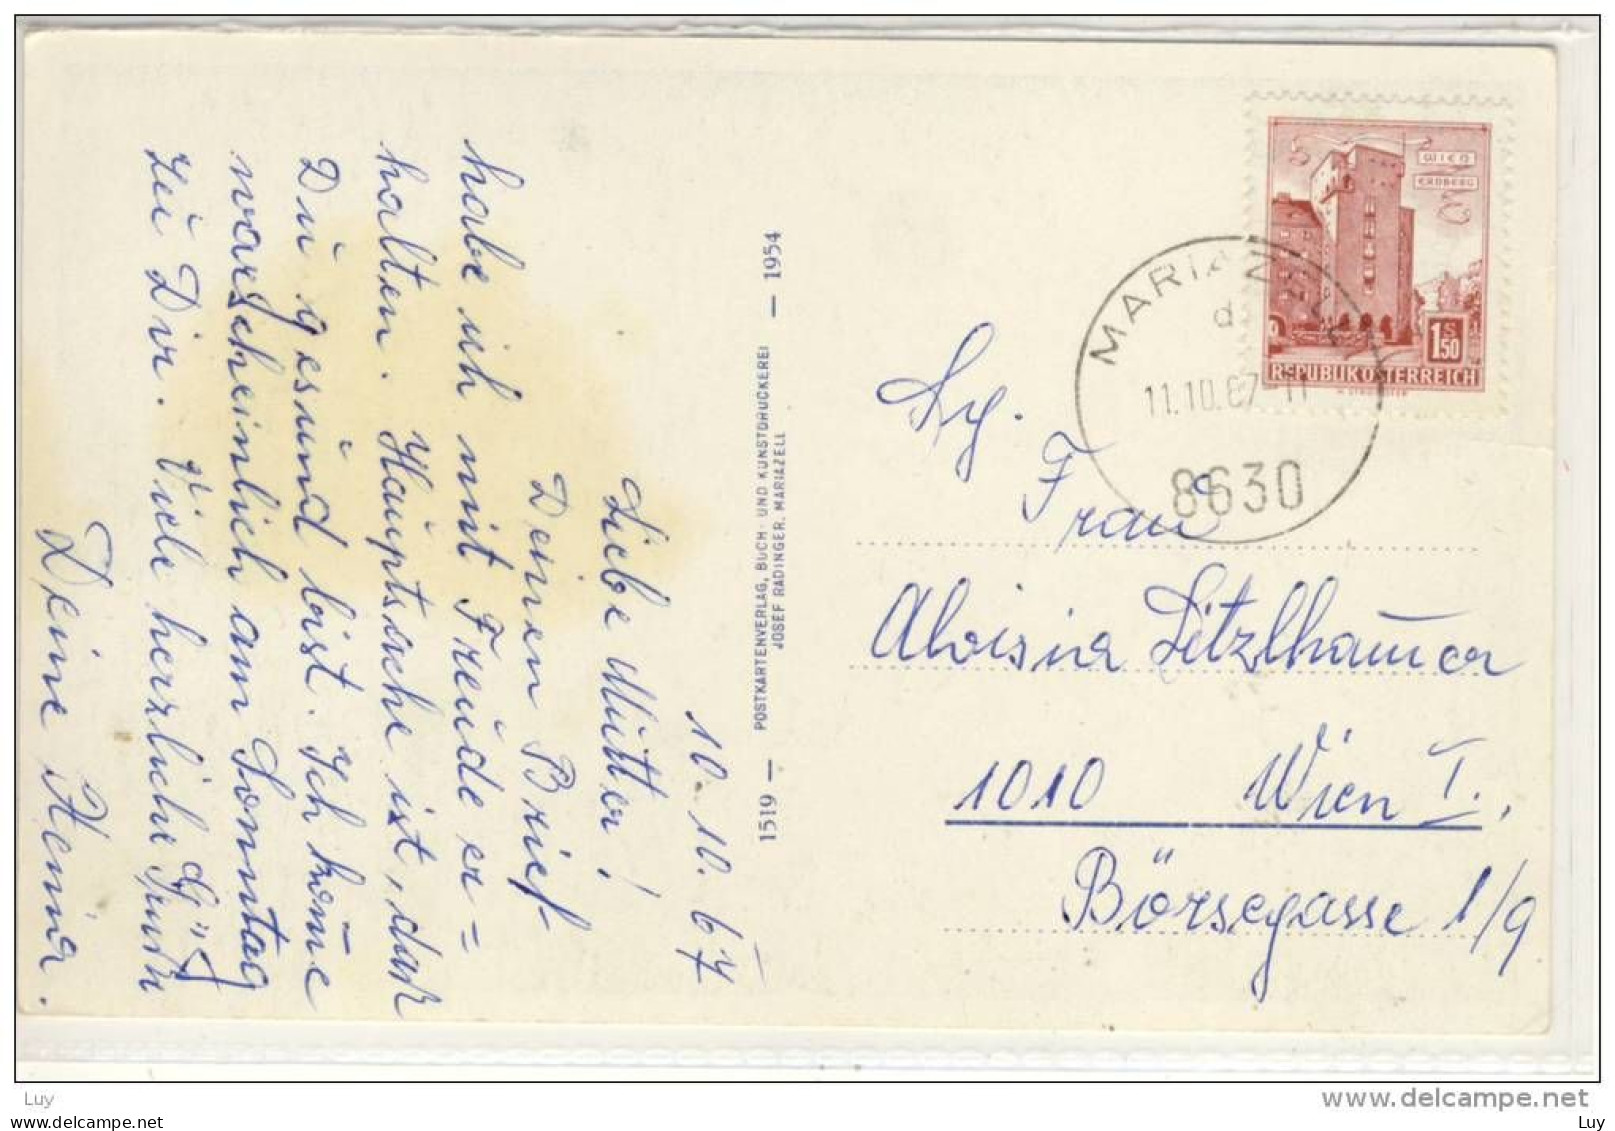 10. 10. 67
Liebe Mutter!
Deinen Brief
habe ich mit Freude er=
halten. Hauptsache ist, daß
Du gesund bist. Ich kom̄e
warscheinlich am Sonntag
zu Dir. Viele herzliche Grüße
Deine
1519 — POSTKARTENVERLAG, BUCH- UND KUNSTDRUCKEREI — 1954
JOSEF RADINGER, MARIAZELL
WIEN
ERDBERG
1 S 50
REPUBLIK ÖSTERREICH
MARIAZELL
d
11.10.67-11
8630
Frau
Aloisia Litzlhauer
1010 Wien I.,
Börsegasse 1/9
www.delcampe.net
Luy
Luy